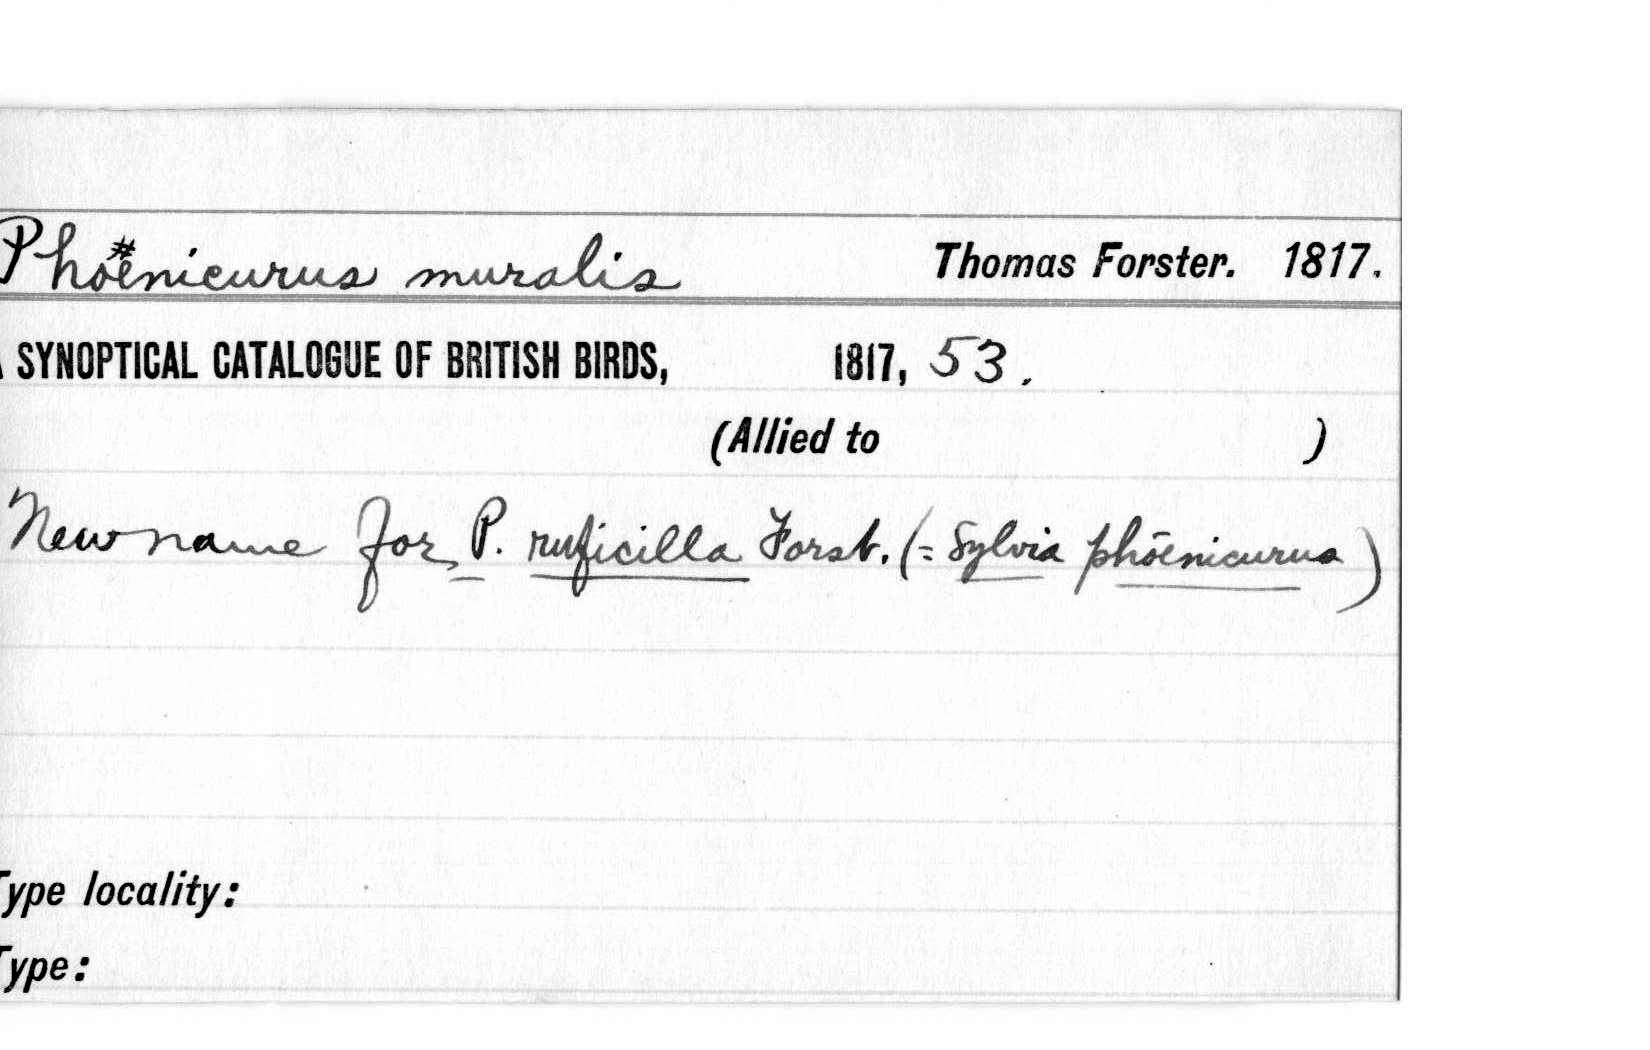 Phoënicurus muralis Thomas Forster. 1817.
SYNOPTICAL CATALOGUE OF BRITISH BIRDS, 1817, 53.
(Allied to )
New name for P. ruficilla Forst. (= Sylvia phoēnicurus)
Type locality:
Type: